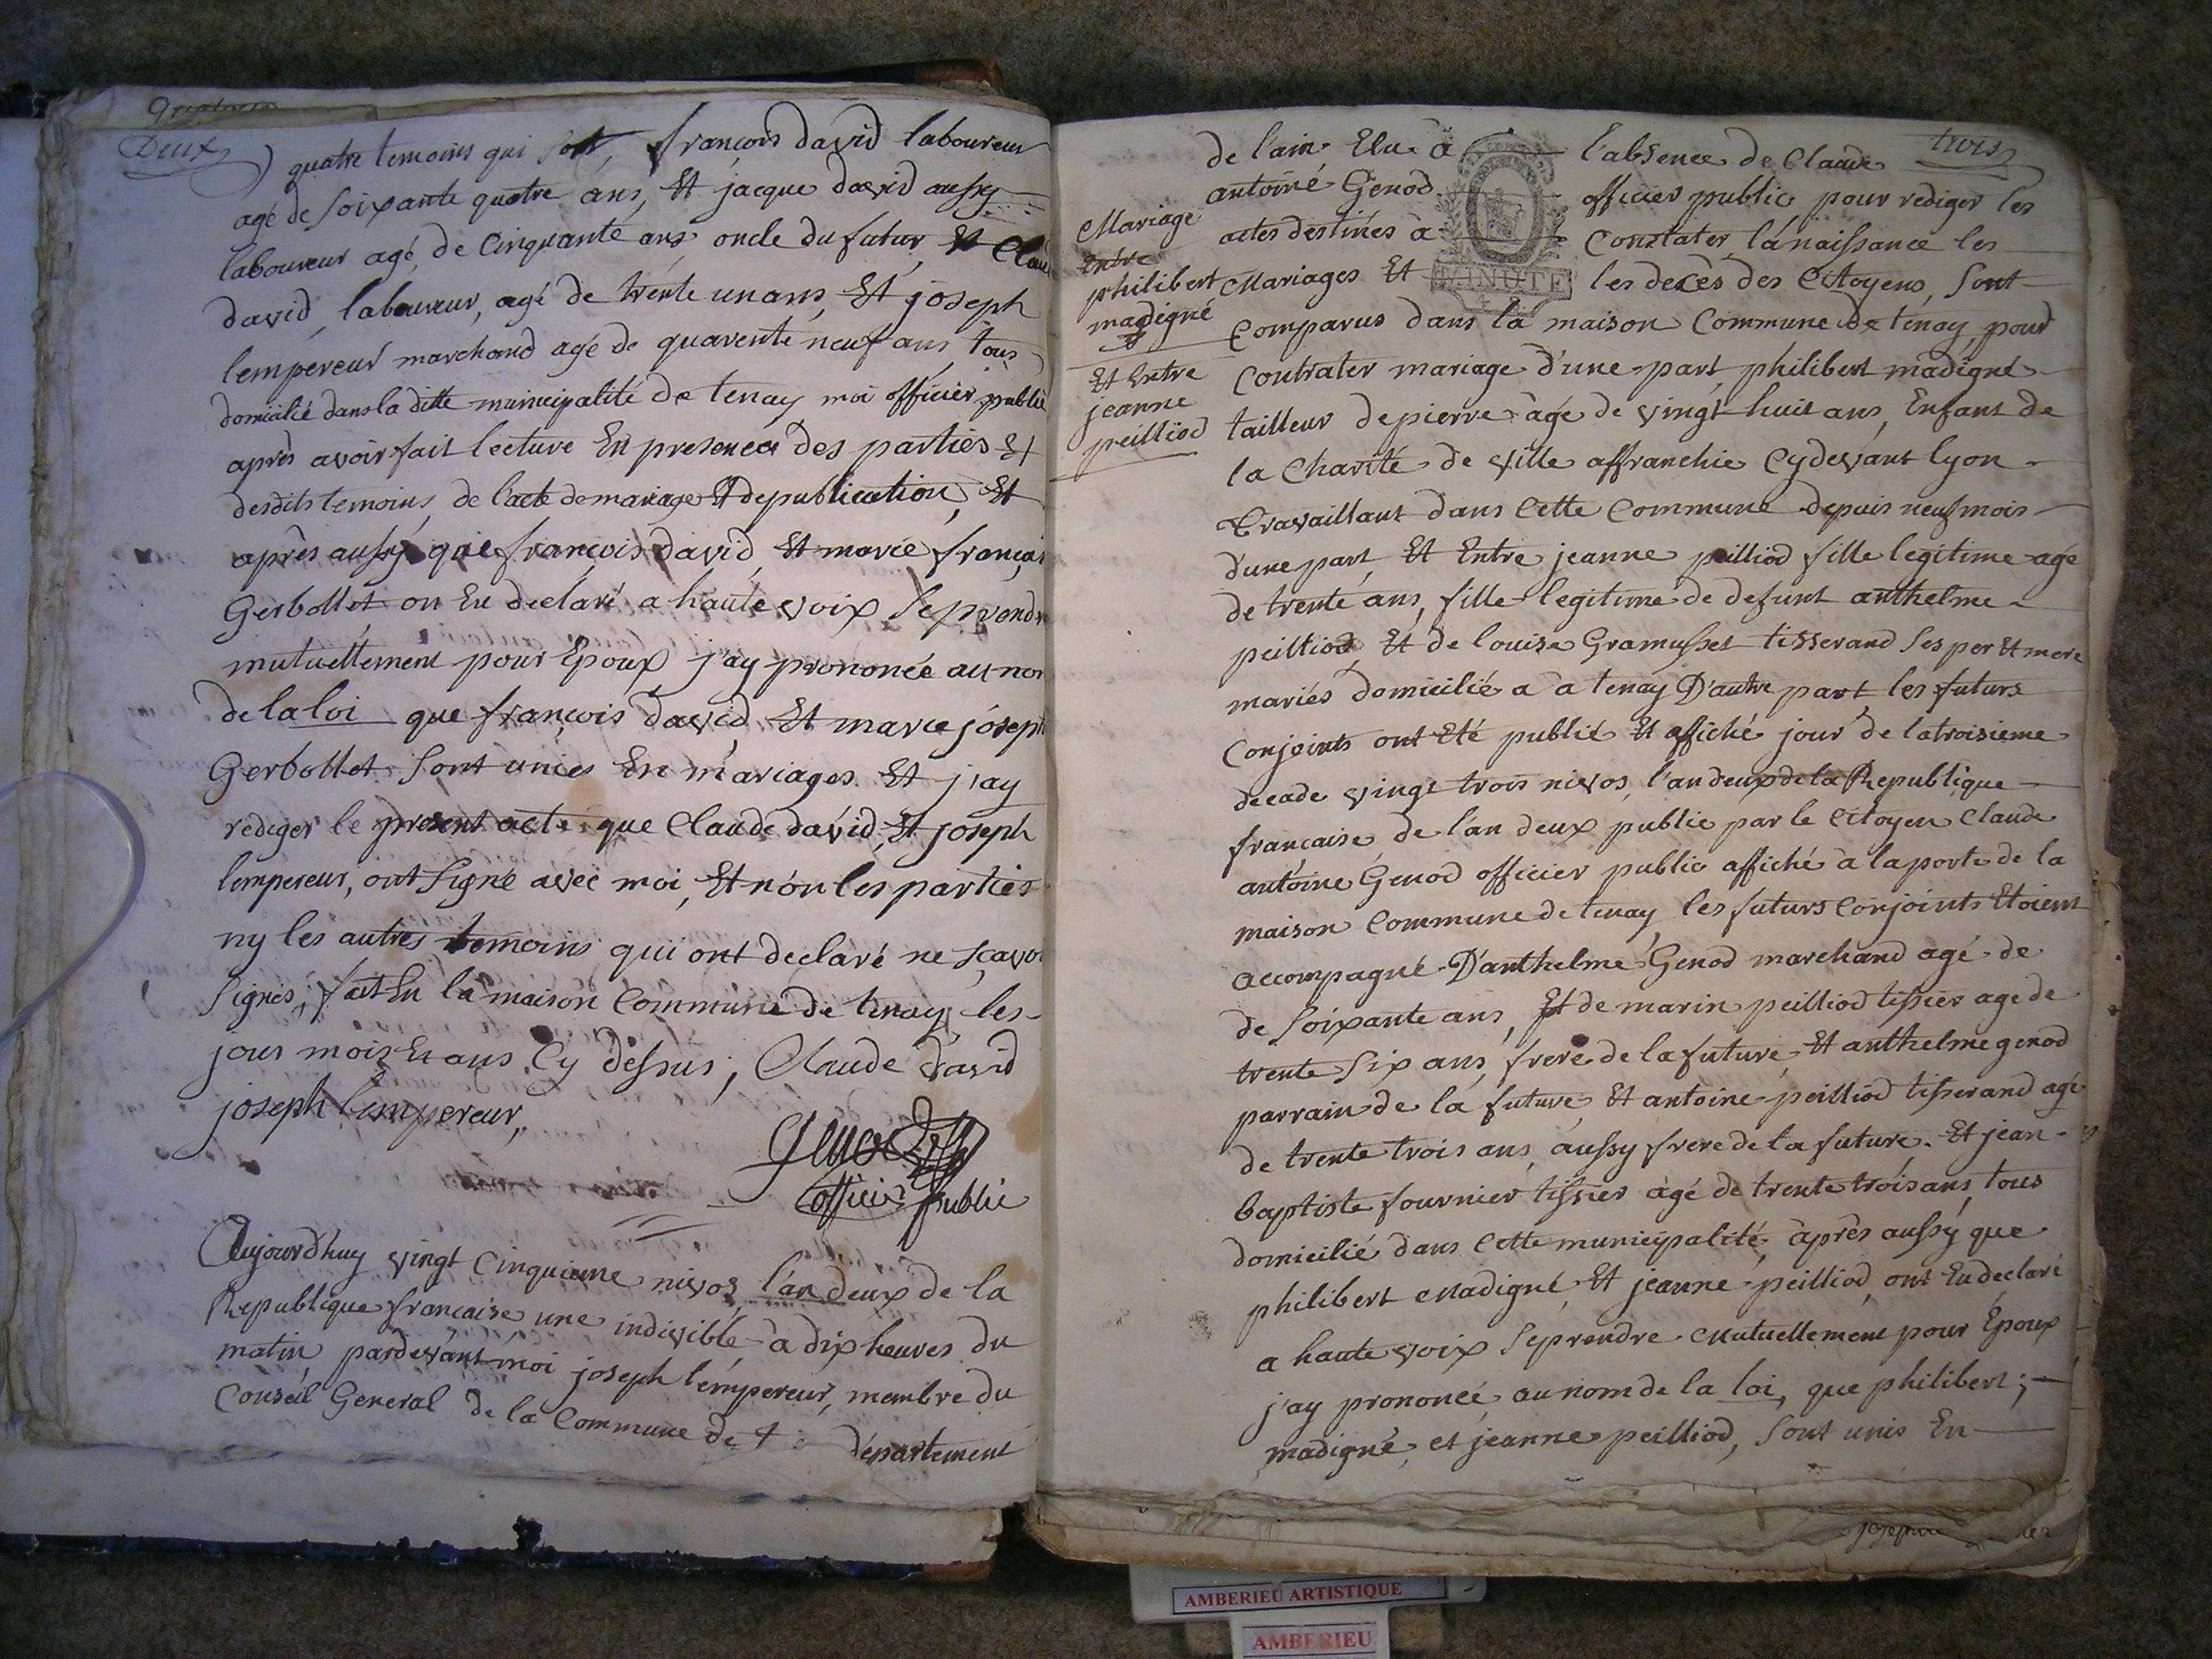 Deux
quatre temoins qui sont, françois david laboureur
agé de soixante quatre ans, Et jacque david aussy
laboureur agé de cinquante ans oncle du futur, Et
david, laboureur, agé de trente un ans, Et joseph
lempereur marchand agé de quarente neuf ans, tous
domicilié dans la ditte municipalité de tenay moi officier public
après avoir fait lecture En presence des parties Et
desdits temoins, de l'acte de mariage Et de publication, Et
après aussy que françois david, Et marie
Gerbollet on Eu declaré a haute voix Se prendre
mutuellement pour Epoux j'ay prononcée au nom
de la loi que françois david, Et marie joseph
Gerbollet Sont unies En mariages Et j'ay
rediger le present acte que Claude david, Et joseph
lempereur, ont Signé avec moi, Et non les parties
ny les autres temoins qui ont declaré ne sçavoir
Signés, fait En la maison Commune de tenay les
jour mois Et ans Cy dessus, Claude david
joseph lempereur,
Genod
officier public
Aujourdhuy vingt Cinquieme nivos, l'an deux de la
Republique francaise une indivible à dix heures du
matin, pardevant moi joseph lempereur, membre du
Conseil General de la Commune de t
departement
trois
de l'ain, Elu à l'absence de Claude
antoine Genod officier public pour rediger les
actes destinés à Constater, la naissance les
Mariages Et les decès des Citoyens, Sont
MINUTE
Mariage
Entre
philibert
madigné
Et Entre
jeanne
peilliod
Comparus dans la maison Commune de tenay, pour
Contrater mariage d'une part philibert madigné
tailleur de pierre agé de vingt huit ans, Enfant de
la Charité de ville affranchie Cydevant lyon
Travaillant dans Cette Commune depuis neuf mois
d'une part, Et Entre jeanne peilliod fille legitime agé
de trente ans, fille legitime de defunt anthelme
peilliod, Et de louise Gramusset tisserand Ses per Et mere
mariés domicilié a a tenay D'autre part, les futurs
Conjoints ont Eté publié Et affiché jour de la troisieme
decade vingt trois nivos, l'an deux de la Republique
francaise de l'an deux public par le Citoyen Claude
antoine Genod officier public affiché à la porte de la
maison Commune de tenay, les futurs Conjoints Etoient
accompagné D'anthelme Genod marchand agé de
de soixante ans, Et de marin peilliod tissier age de
trente Six ans, frere de la future, Et anthelme genod
parrain de la future Et antoine peilliod tisserand agé
de trente trois ans aussy frere de la future. Et jean
baptiste fournier tissier agé de trente trois ans, tous
domicilié dans Cette municipalité, après aussy que
philibert Madigné, Et jeanne peilliod, ont Eu declaré
a haute voix Se prendre Mutuellement pour Epoux
j'ay prononcé, au nom de la loi, que philibert;
madigné, et jeanne peilliod, Sont unis En
AMBERIEU ARTISTIQUE
AMBERIEU